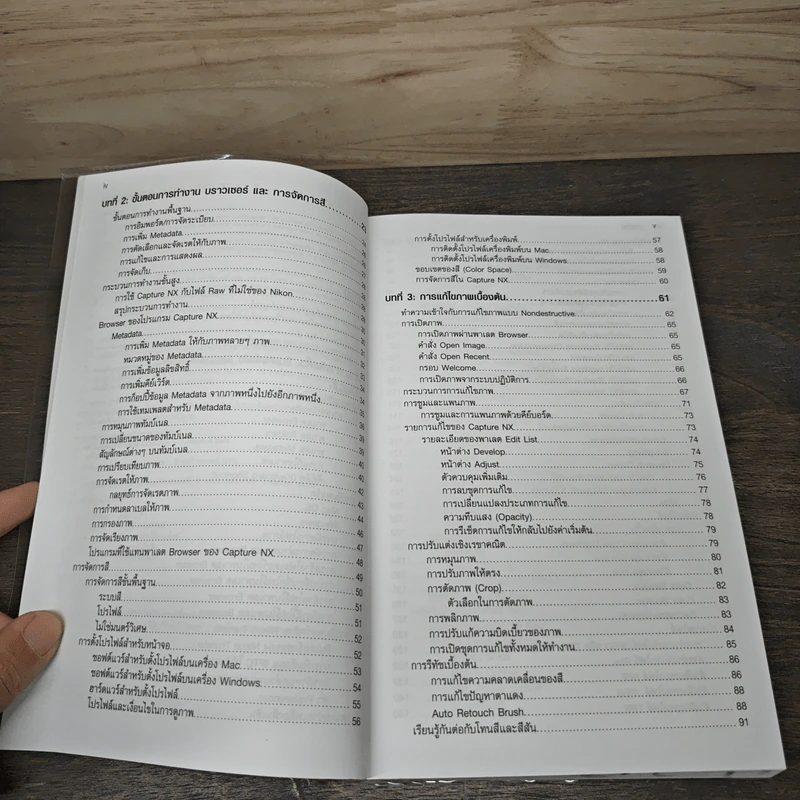 iv
บทที่ 2: ขั้นตอนการทำงาน บราวเซอร์ และ การจัดการสี
ขั้นตอนการทำงานพื้นฐาน
การอิมพอร์ต/การจัดระเบียบ
การเพิ่ม Metadata
การคัดเลือกและจัดเรตให้กับภาพ
การแก้ไขและการแสดงผล
การจัดเก็บ
กระบวนการทำงานขั้นสูง
การใช้ Capture NX กับไฟล์ Raw ที่ไม่ใช่ของ Nikon
สรุปกระบวนการทำงาน
Browser ของโปรแกรม Capture NX
Metadata
การเพิ่ม Metadata ให้กับภาพหลายๆ ภาพ
หมวดหมู่ของ Metadata
การเพิ่มข้อมูลลิขสิทธิ์
การเพิ่มคีย์เวิร์ด
การก๊อปปี้ข้อมูล Metadata จากภาพหนึ่งไปยังอีกภาพหนึ่ง
การใช้เทมเพลตสำหรับ Metadata
การหมุนภาพทัมบ์เนล
การเปลี่ยนขนาดของทัมบ์เนล
สัญลักษณ์ต่างๆ บนทัมบ์เนล
การเปรียบเทียบภาพ
การจัดเรตให้ภาพ
กลยุทธ์การจัดเรตภาพ
การกำหนดลาเบลให้ภาพ
การกรองภาพ
การจัดเรียงภาพ 46
โปรแกรมที่ใช้แทนพาเลต Browser ของ Capture NX 47
การจัดการสี 48
การจัดการสีขั้นพื้นฐาน 49
ระบบสี 50
โปรไฟล์ 51
ไม่ใช่มนตร์วิเศษ 51
การตั้งโปรไฟล์สำหรับหน้าจอ 52
ซอฟต์แวร์สำหรับตั้งโปรไฟล์บนเครื่อง Mac 53
ซอฟต์แวร์สำหรับตั้งโปรไฟล์บนเครื่อง Windows 54
ฮาร์ดแวร์สำหรับตั้งโปรไฟล์ 55
โปรไฟล์และเงื่อนไขในการดูภาพ 56
v
การตั้งโปรไฟล์สำหรับเครื่องพิมพ์ 57
การติดตั้งโปรไฟล์เครื่องพิมพ์บน Mac 58
การติดตั้งโปรไฟล์เครื่องพิมพ์บน Windows 58
ขอบเขตของสี (Color Space) 59
การจัดการสีใน Capture NX 60
บทที่ 3: การแก้ไขภาพเบื้องต้น 61
ทำความเข้าใจกับการแก้ไขภาพแบบ Nondestructive 62
การเปิดภาพ 65
การเปิดภาพผ่านพาเลต Browser 65
คำสั่ง Open Image 65
คำสั่ง Open Recent 65
กรอบ Welcome 66
การเปิดภาพจากระบบปฏิบัติการ 66
กระบวนการการแก้ไขภาพ 67
การซูมและแพนภาพ 71
การซูมและการแพนภาพด้วยคีย์บอร์ด 73
รายการแก้ไขของ Capture NX 73
รายละเอียดของพาเลต Edit List 74
หน้าต่าง Develop 74
หน้าต่าง Adjust 75
ตัวควบคุมเพิ่มเติม 76
การลบชุดการแก้ไข 77
การเปลี่ยนแปลงประเภทการแก้ไข 78
ความทึบแสง (Opacity) 78
การรีเซ็ตการแก้ไขให้กลับไปยังค่าเริ่มต้น 79
การปรับแต่งเชิงเรขาคณิต 79
การหมุนภาพ 80
การปรับภาพให้ตรง 81
การตัดภาพ (Crop) 82
ตัวเลือกในการตัดภาพ 83
การพลิกภาพ 83
การปรับแก้ความบิดเบี้ยวของภาพ 84
การเปิดชุดการแก้ไขทั้งหมดให้ทำงาน 85
การรีทัชเบื้องต้น 86
การแก้ไขความคลาดเคลื่อนของสี 86
การแก้ไขปัญหาตาแดง 88
Auto Retouch Brush 88
เรียนรู้กันต่อกับโทนสีและสีสัน 91